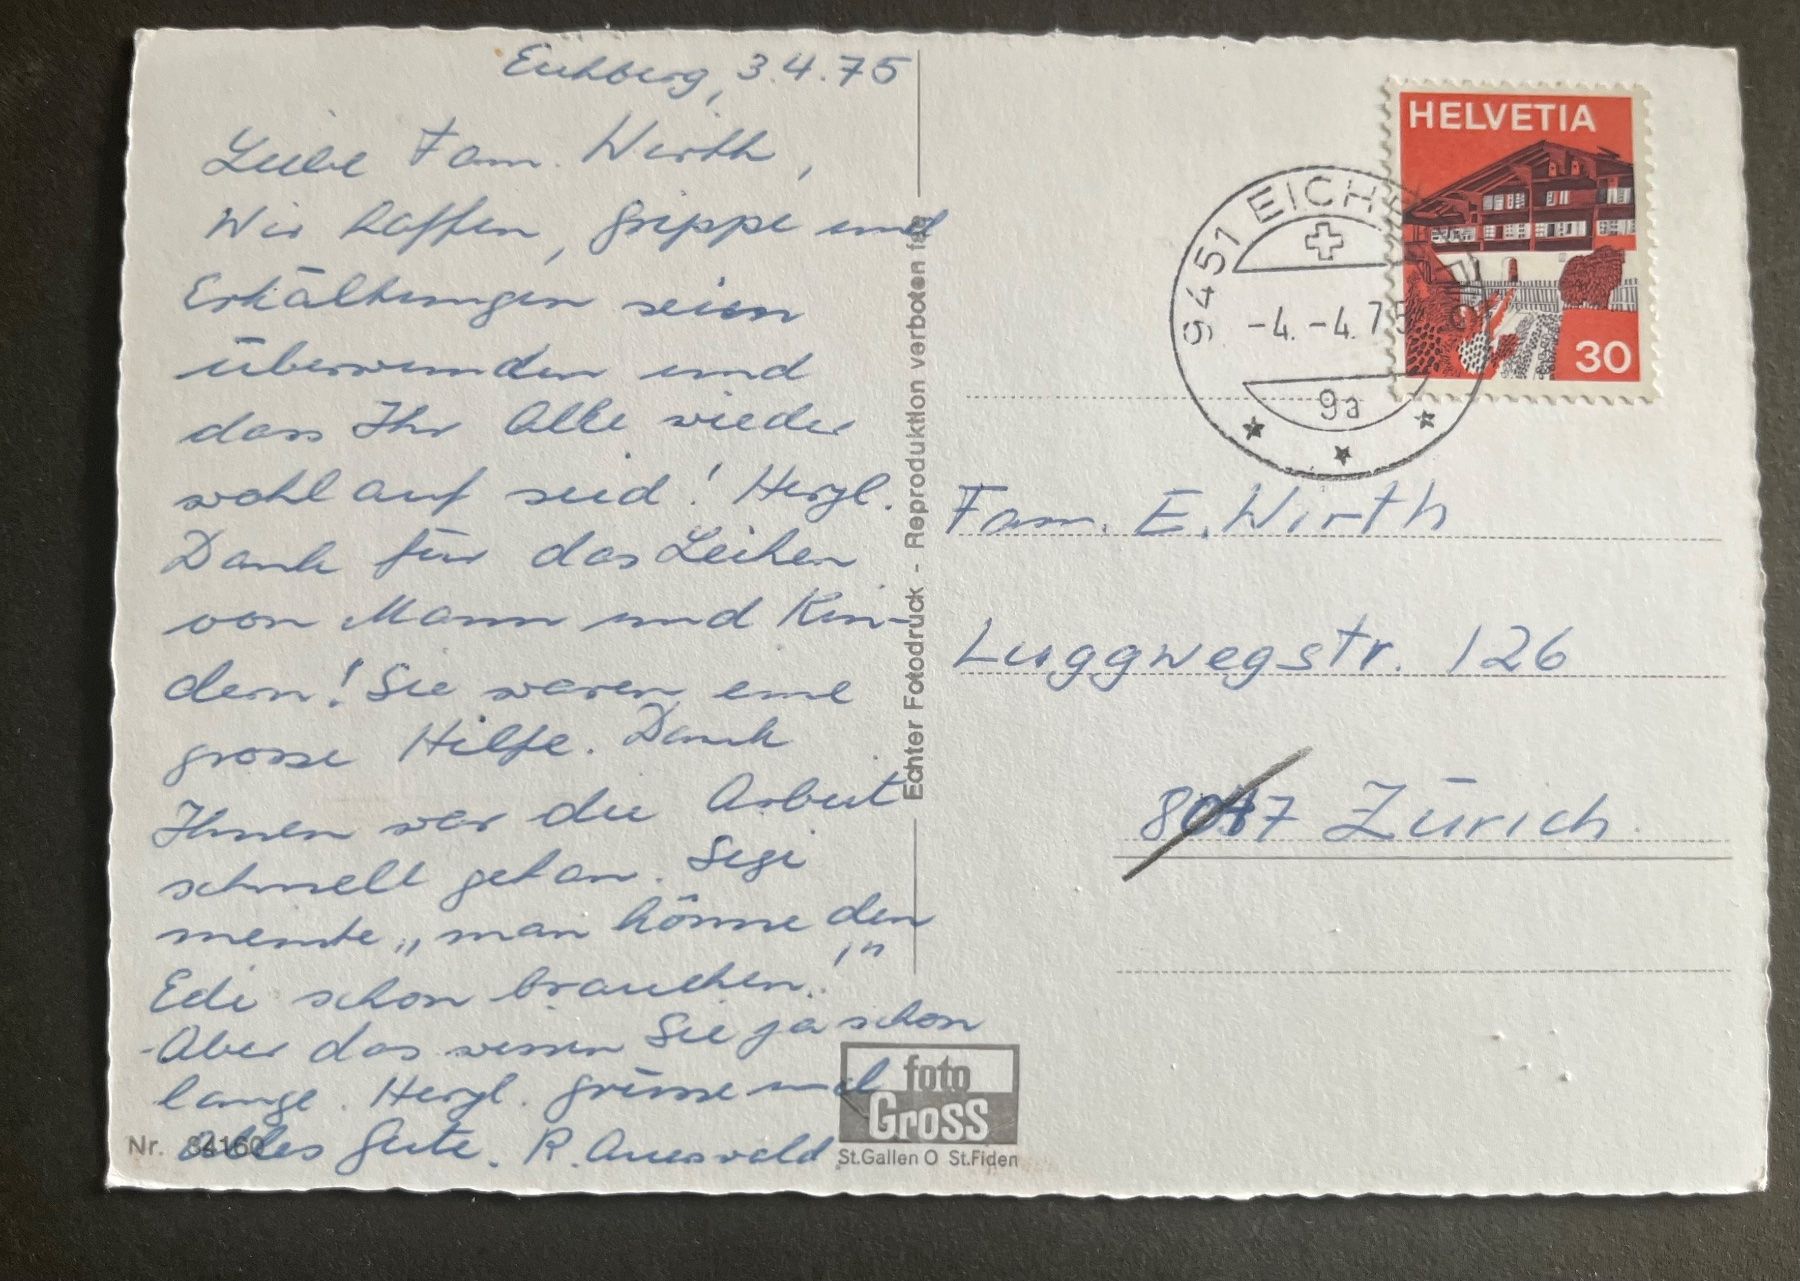 Eichberg, 3.4.75
Liebe Fam. Wirth,
Wir hoffen, Grippe und
Erkältungen seien
überwunden und
dass Ihr Alle wieder
wohlauf seid! Herzl.
Dank für das Leihen
von Mann und Kin-
dern! Sie waren eine
grosse Hilfe. Dank
Ihnen war die Arbeit
schnell getan. Sigi
meinte „man könne den
Edi schon brauchen!"
Aber das wissen Sie ja schon
lange. Herzl. Grüsse und
Alles Gute. R. Auerswald
Nr. 34160
Echter Fotodruck - Reproduktion verboten
foto
Gross
St.Gallen O St.Fiden
HELVETIA
30
9451 EICH
-4.-4.75
9a
Fam. E. Wirth
Luggwegstr. 126
Zürich